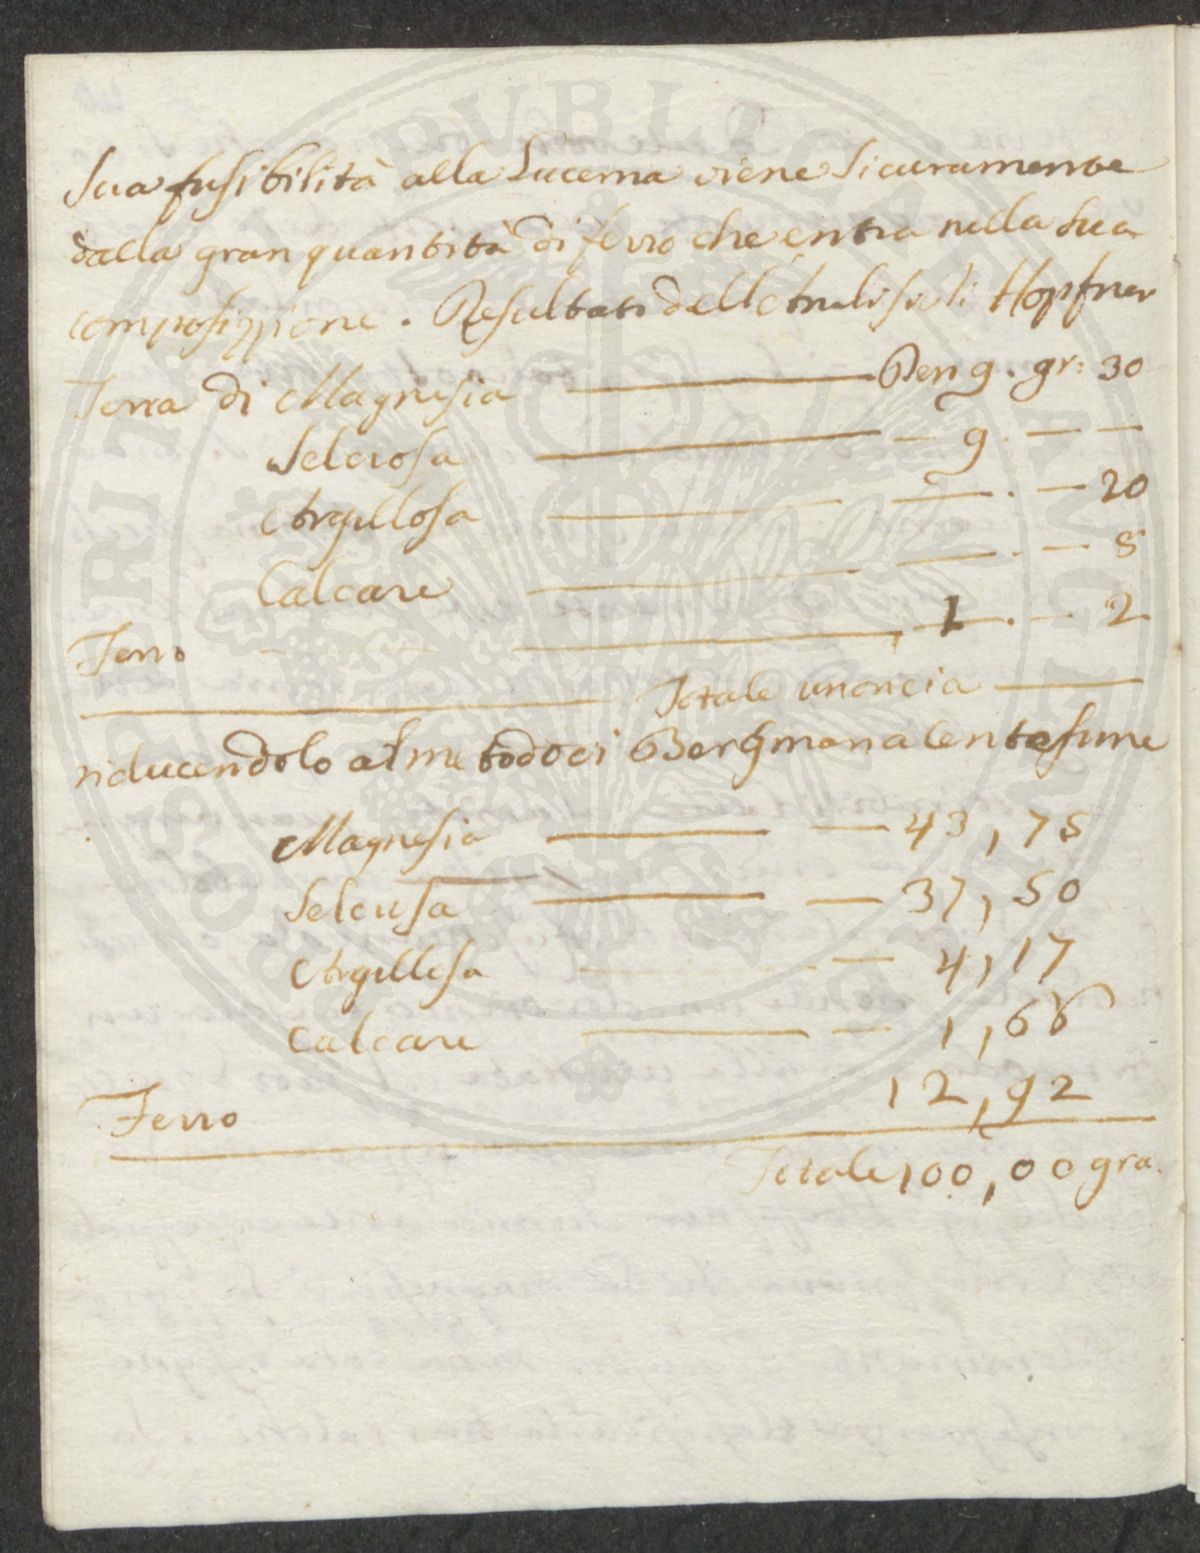 sua fusibilità alla Lucerna viene sicuramente
dalla gran quantità di ferro che entra nella sua
composizzione. Resultati dell Analisi di Hopfner
Terra di Magnesia — Den 9. gr: 30
Selciosa — 9. — —
Argillosa — — . — 20
Calcare — — . — 8
Ferro — 1 . — 2
Totale unoncia —
riducendolo al metodo di Bergman a Centesime
Magnesia — — 43,75
Selciosa — — 37,50
Argillosa — — 4,17
Calcare — — 1,66
Ferro 12,92
Totale 100,00 gra.